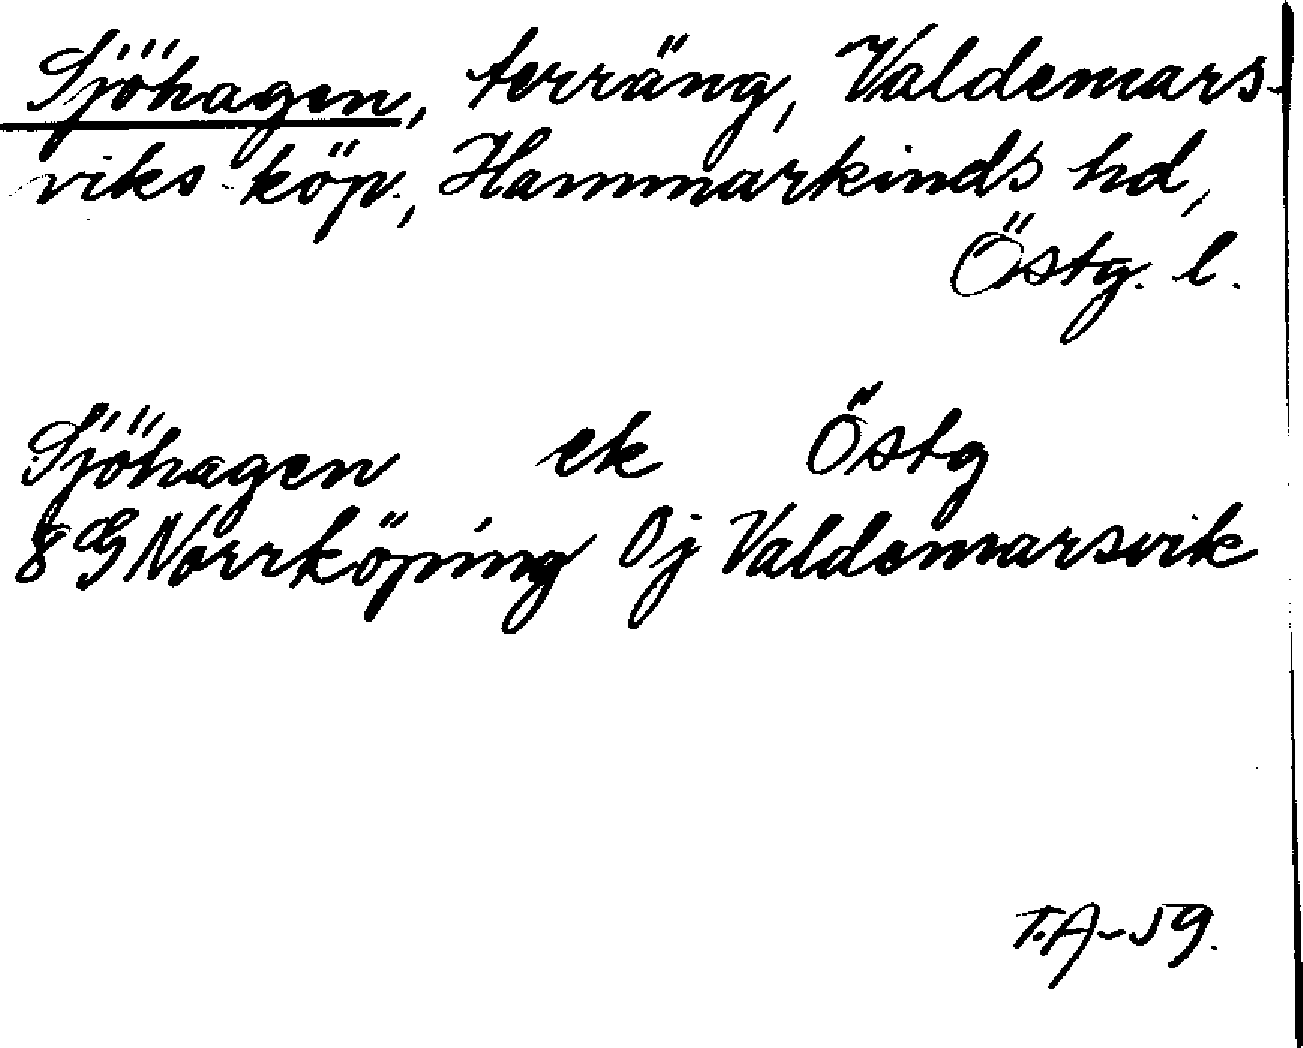 Sjöhagen, terräng, Valdemars-
viks köp., Hammarkinds hd,
Östg. l.
Sjöhagen ek Östg
8 G Norrköping 0j Valdemarsvik
T.A-59.